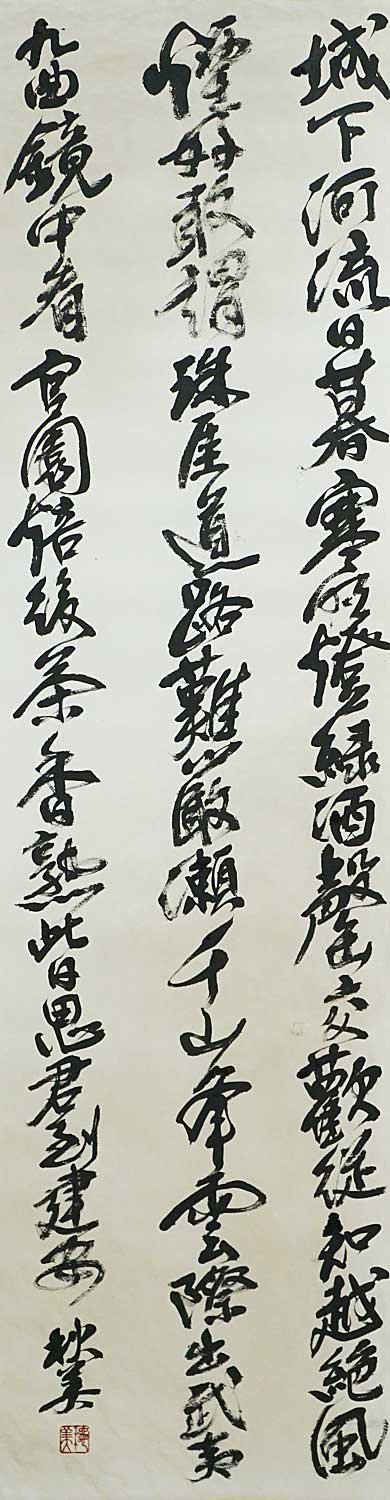 城下河流日暮寒明燈綠酒罄交歡從知越絕風
煙好敢謂珠崖道路難嚴瀨千峯雲際出武夷
九曲鏡中看官園焙後茶香熟此日思君到建安